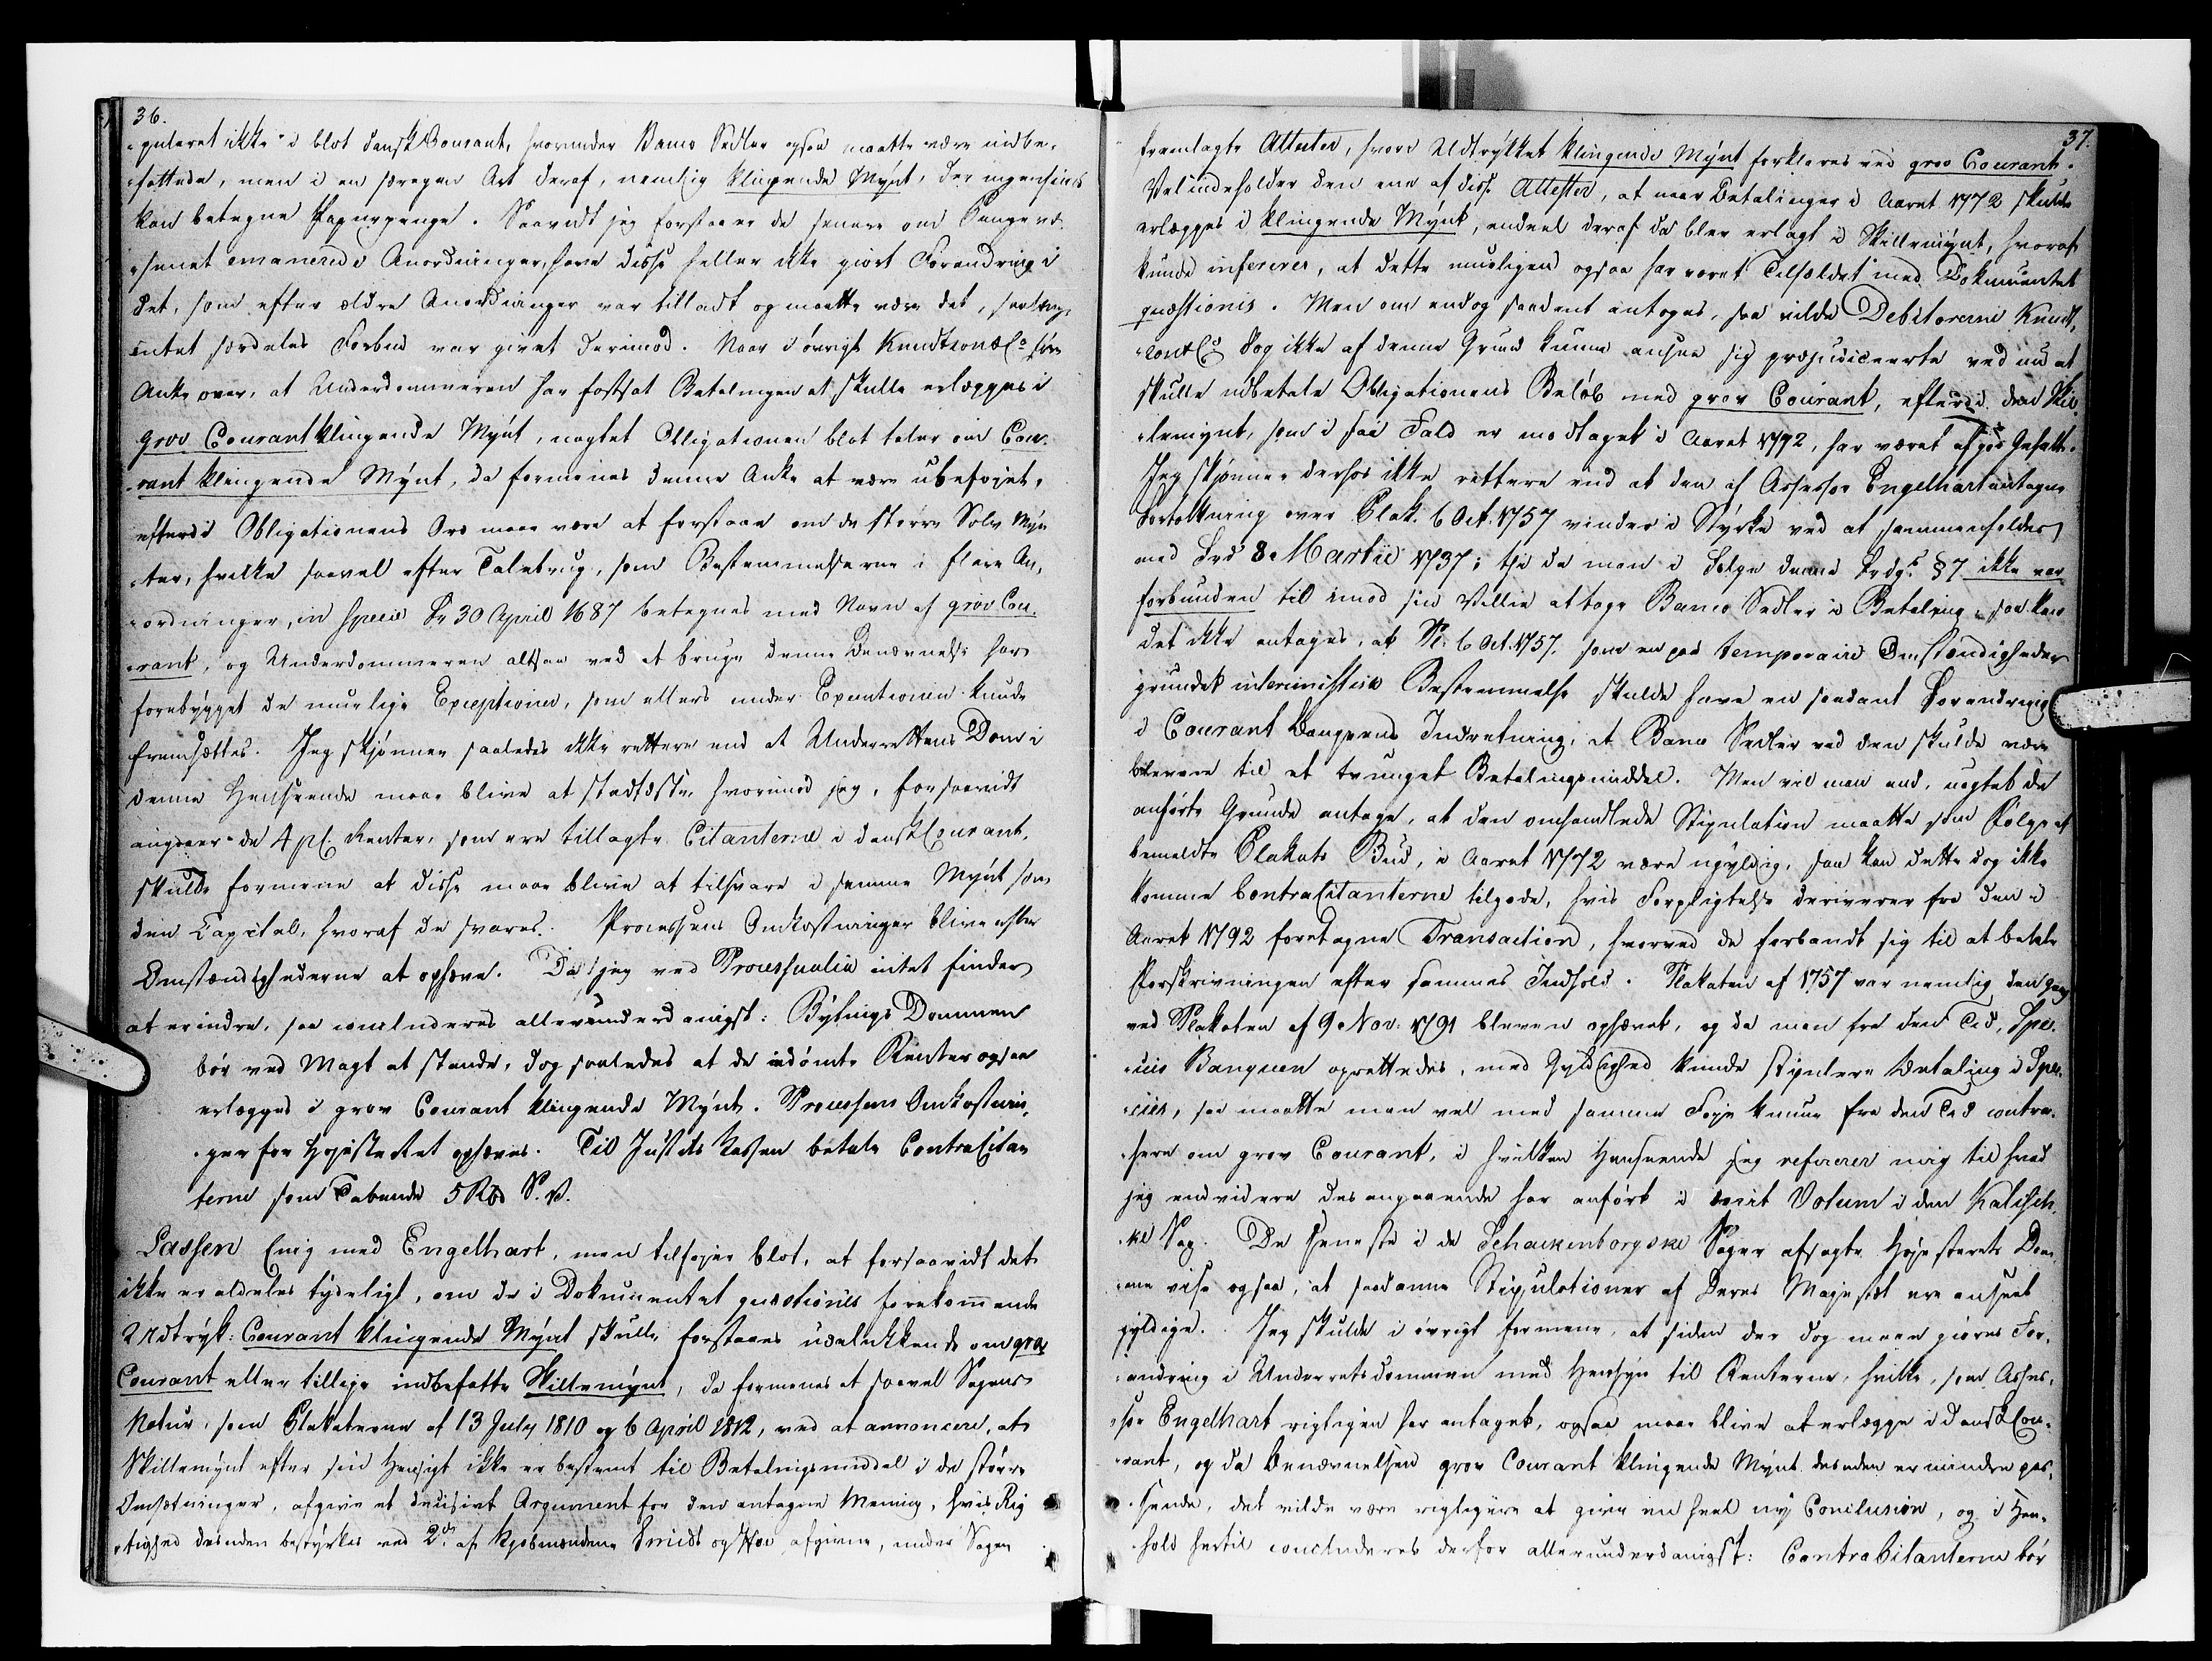 36.
puleret ikke i blot dansk Courant, hvorunder Banco Sedler ogsaa maatte være indbe-
fattede, men i en særegen Art deraf, nemlig klingende Mynt, der ingensinde
kan betegne Papirpenge. Saavidt jeg forstaaer de senere om Pengevæ-
senet emanerede Anordninger, have disse heller ikke giort Forandring i
det, som efter ældre Anordninger var tilladt og maatte være det, saalænge
intet særdeles Forbud var givet derimod. Naar i øvrigt Knudtson & Co føre
Anke over, at Underdommeren har fastsat Betalingen at skulle erlægges i
grov Courant klingende Mynt, uagtet Obligationen blot taler om Cou-
rant klingende Mynt, da formenes denne Anke at være ubeføjet,
efterdi Obligationens Ord maae være at forstaae om de større Sølv Myn-
ter, hvilke saavel efter Talebrug, som Bestemmelserne i flere An-
ordninger, in specie Fr. 30 April 1687 betegnes med Navn af grov Cou-
rant, og Underdommeren altsaa ved at bruge denne Benævnelse har
forebygget de muelige Exceptioner, som ellers under Executionen kunde
fremsættes. Jeg skjønner saaledes ikke rettere end at Underrettens Dom i
denne Henseende maae blive at stadfæste, hvorimod jeg, forsaavidt
angaaer de 4 pC. Renter, som ere tillagte Citanterne i dansk Courant,
skulde formene at disse maae blive at tilsvare i samme Mynt som
den Capital, hvoraf de svares. Processens Omkostninger blive efter
Omstændighederne at ophæve. Da jeg ved Processualia intet finder
at erindre, saa concluderes allerunderdanigst: Bytings Dommen
bør ved Magt at stande, dog saaledes at de idømte Renter ogsaa
erlægges i grov Courant klingende Mynt. Processens Omkostnin-
ger for Højesteret ophæves. Til Justits Kassen betale ContraCitan
terne som Tabende 5 Rbd S. V.
Lassen Enig med Engelhart, men tilføjer blot, at forsaavidt det
ikke er aldeles tydeligt, om de i Dokumentet quæstionis forekommende
Udtryk: Courant klingende Mynt skulle forstaaes udelukkende om grov
Courant eller tillige indbefatte Skillemynt, da formenes at saavel Sagens
Natur, som Plakaterne af 13 July 1810 og 6 April 1812, ved at annoncere, at
Skillemynt efter sin Hensigt ikke er bestemt til Betalingsmiddel i de større
Omsætninger, afgive et decisivt Argument for den antagne Mening, hvis Rig
tighed desuden bestyrkes ved 2de af Kjøbmændene Smidt og afgivne, under Sagen
37.
fremlagte Attester, hvori Udtrykket klingende Mynt forklares ved grov Courant.
Vel indeholder den ene af disse Attester, at naar Betalinger i Aaret 1772 skulde
erlægges i klingende Mynt, endeel deraf da blev erlagt i Skillemynt, hvoraf
kunde infereres, at dette mueligen ogsaa har været Tilfældet med Dokumentet
quæstionis. Men om endog saadant antoges, saa vilde Debitorerne Knudt-
zon & Co dog ikke af denne Grund kunne ansee sig præjudiceerte ved nu at
skulle udbetale Obligationens Beløb med grov Courant, efterdi den Skil-
lemynt, som i saa Fald er modtaget i Aaret 1772, har været af god Gehalt.
Jeg skjønner derhos ikke rettere end at den af Assessor Engelhart antagne
Fortolkning over Plak. 6 Oct. 1757 vinder i Styrke ved at sammenholdes
med Frd 8 Martii 1737; thi da man i Følge denne Frdgs § 7 ikke var
forbunden til imod sin Villie at tage Banco Sedler i Betaling, saa kan
det ikke antages, at Pl. 6 Oct. 1757, som en paa temporaire Omstændigheder
grundet interimistisk Bestemmelse skulde have en saadant Forandring
i Courant Banquens Indretning, at Banco Sedler ved den skulde være
blevne til et tvunget Betalingsmiddel. Men vil man end, uagtet de
anførte Grunde antage, at den omhandlede Stipulation maatte som Følge af
bemeldte Plakats Bud, i Aaret 1772 være ugyldig, saa kan dette dog ikke
komme ContraCitanterne tilgode, hvis Forpligtelse deriverer fra den i
Aaret 1792 foretagne Transaction, hvorved de forbandt sig til at betale
Forskrivningen efter sammes Indhold. Plakaten af 1757 var nemlig den gang
ved Plakaten af 9 Nov: 1791 bleven ophævet, og da man fra den Tid, Spe-
cies Banquen oprettedes, med Gyldighed kunde stipulere Betaling i Spe-
cies, saa maatte man vel med samme Føje kunne fra den Tid contra-
here om grov Courant, i hvilken Henseende jeg refererer mig til hvad
jeg endvidere desangaaende har anført i mit Votum i den Kalisch-
ke Sag. De seneste i de Schackenborgske Sager afsagte Højesterets Dom-
me vise ogsaa, at saadanne Stipulationer af Deres Majestæt ere anseet
gyldige. Jeg skulde i øvrigt formene, at siden der dog maae giøres For-
andring i Underretsdommen med Hensyn til Renterne, hvilke, som Asses-
sor Engelhart rigtigen har antaget, ogsaa maae blive at erlægge i dansk Cou-
rant, og da Benævnelsen grov Courant klingende Mynt desuden er mindre pas-
sende, det vilde være rigtigere at give en heel ny Conclusion, og i Hen-
hold hertil concluderes derfor allerunderdanigst: ContraCitanterne bør